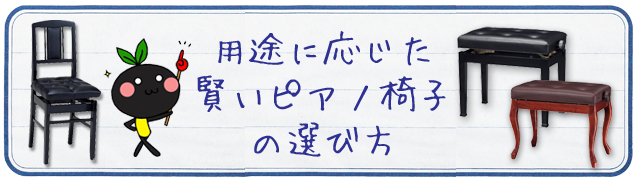 用途に応じた
賢いピアノ椅子
の選び方